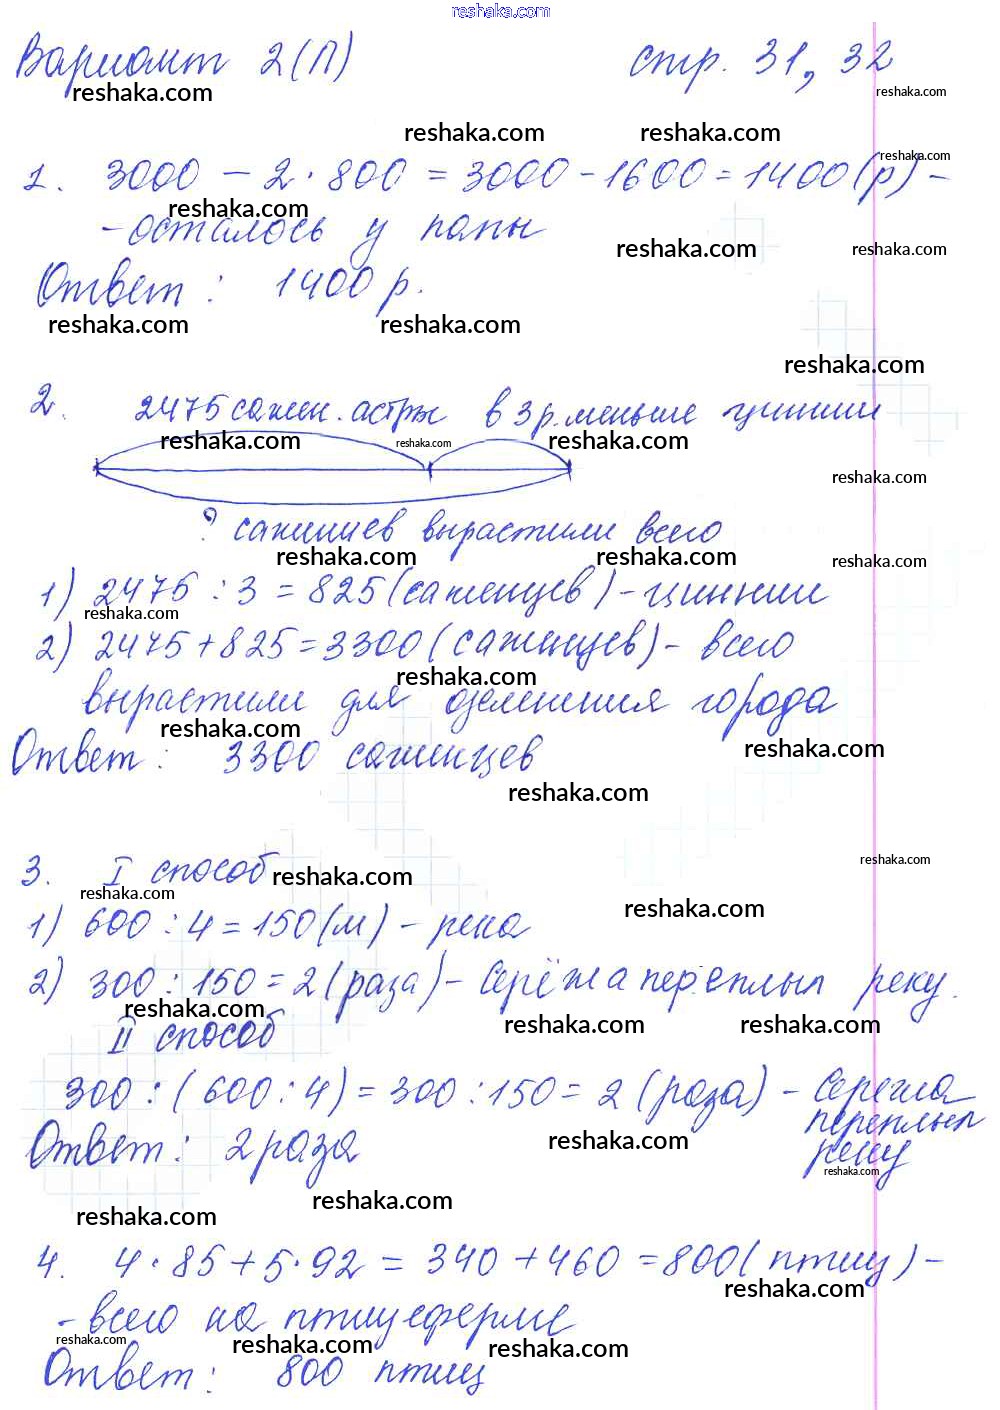 reshaka.com
Вариант 2(П) стр. 31, 32
reshaka.com reshaka.com
reshaka.com reshaka.com
reshaka.com
1. 3000 - 2 · 800 = 3000 - 1600 = 1400 (р) -
reshaka.com
- осталось у папы
reshaka.com reshaka.com
Ответ: 1400 р.
reshaka.com reshaka.com
reshaka.com
2. 2475 сажен. астры в 3 р. меньше циннии
reshaka.com reshaka.com reshaka.com
reshaka.com
? саженцев вырастили всего
reshaka.com reshaka.com reshaka.com
1) 2475 : 3 = 825 (саженцев) - циннии
reshaka.com
2) 2475 + 825 = 3300 (саженцев) - всего
reshaka.com
вырастили для озеленения города
reshaka.com reshaka.com
Ответ: 3300 саженцев
reshaka.com
reshaka.com
3. I способ
reshaka.com reshaka.com
reshaka.com
1) 600 : 4 = 150 (м) - река
2) 300 : 150 = 2 (раза) - Серёжа переплыл реку.
reshaka.com
reshaka.com reshaka.com
II способ
300 : (600 : 4) = 300 : 150 = 2 (раза) - Сережа
переплыл
реку
Ответ: 2 раза
reshaka.com
reshaka.com
reshaka.com reshaka.com
4. 4 · 85 + 5 · 92 = 340 + 460 = 800 (птиц) -
reshaka.com
- всего на птицеферме
reshaka.com reshaka.com reshaka.com
Ответ: 800 птиц